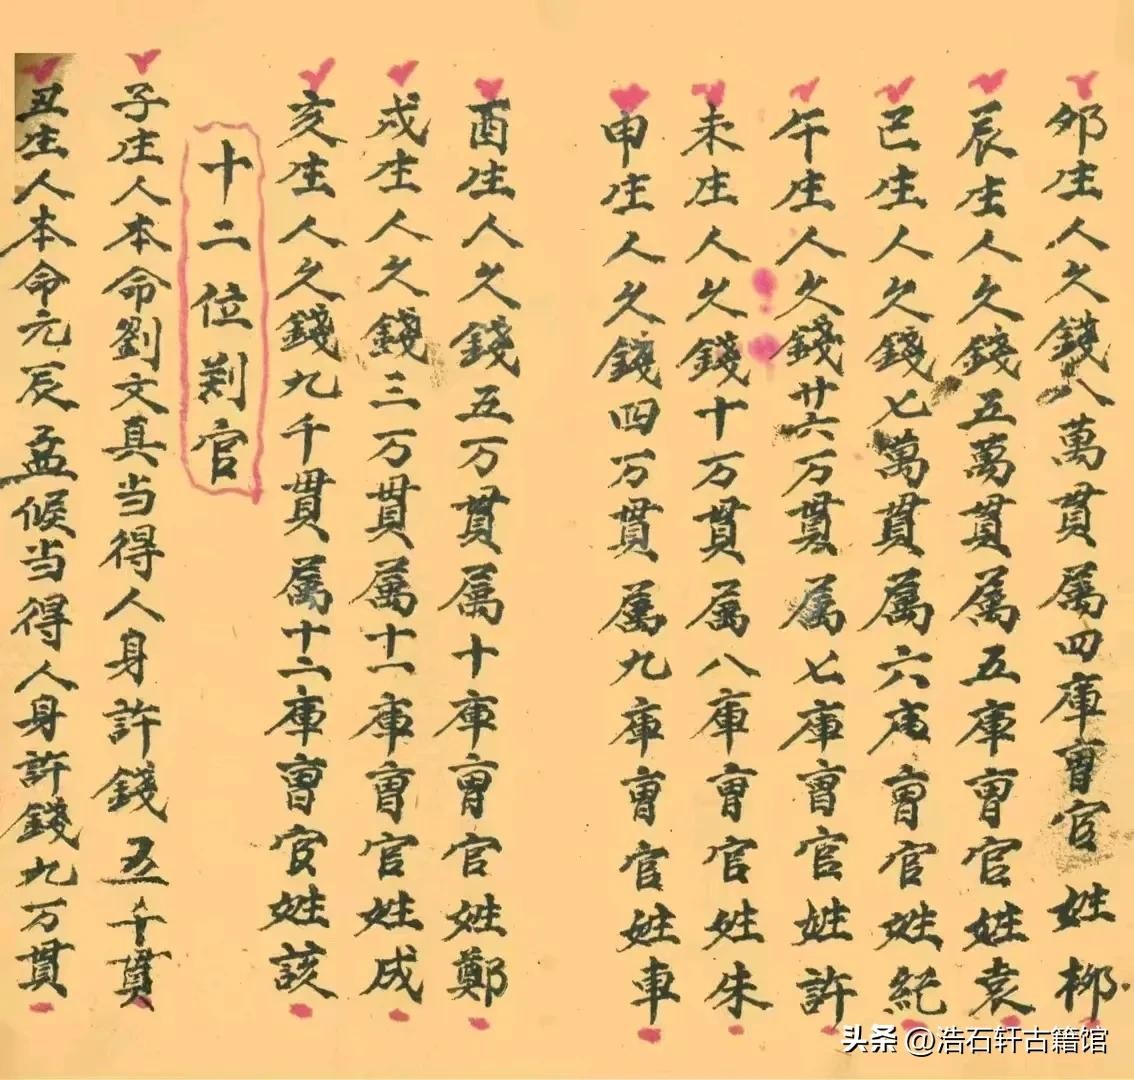 夘生人欠錢八萬貫属四庫曺官姓柳
辰生人欠錢五萬貫属五庫曺官姓袁
已生人欠錢七萬貫属六库曺官姓紀
午生人欠錢廿六万貫属七庫曺官姓許
未生人欠錢十万貫属八庫曺官姓朱
申生人欠錢四万貫属九庫曺官姓車
酉生人欠錢五万貫属十庫曺官姓鄭
戍生人欠錢三万貫属十一庫曺官姓成
亥生人欠錢九千貫属十二庫曺官姓該
十二位判官
子生人本命劉文真当得人身許錢五千貫
丑生人本命元辰孟候当得人身許錢九万貫
头条 @浩石轩古籍馆